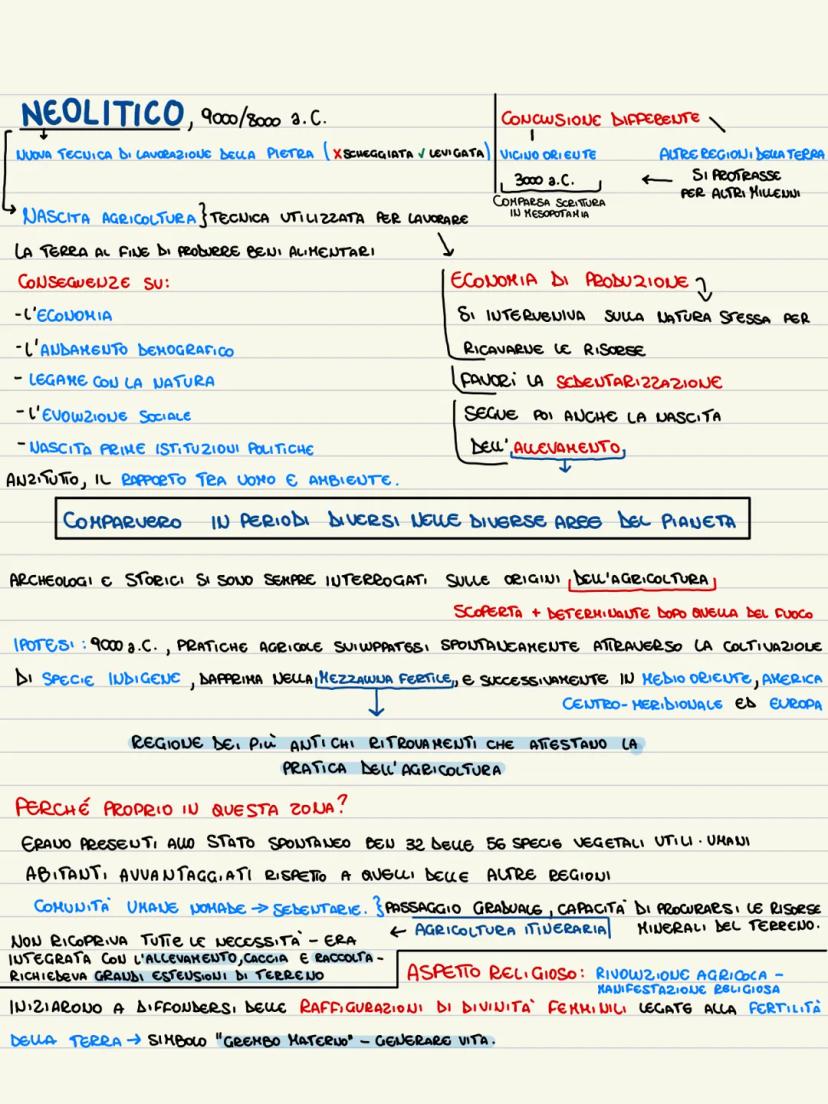 NEOLITICO, 9000/8000 a.C.
NUOVA TECNICA DI LAVORAZIONE DELLA PIETRA (X SCHEGGIATA √ LEVIGATA)
CONCLUSIONE DIFFERENTE
VICINO ORIENTE
ALTRE REGIONI DELLA TERRA
3000 a.C.
← SI PROTRASSE
PER ALTRI MILLENNI
COMPARSA SCRITTURA
IN MESOPOTAMIA
NASCITA AGRICOLTURA } TECNICA UTILIZZATA PER LAVORARE
LA TERRA AL FINE DI PRODURRE BENI ALIMENTARI
CONSEGUENZE SU:
- L'ECONOMIA
- L'ANDAMENTO DEMOGRAFICO
- LEGAME CON LA NATURA
- L'EVOLUZIONE SOCIALE
- NASCITA PRIME ISTITUZIONI POLITICHE
ECONOMIA DI PRODUZIONE
SI INTERVENIVA SULLA NATURA STESSA PER
RICAVARNE LE RISORSE
FAVORÌ LA SEDENTARIZZAZIONE
SEGUE POI ANCHE LA NASCITA
DELL'ALLEVAMENTO
ANZITUTTO, IL RAPPORTO TRA UOMO E AMBIENTE.
COMPARVERO IN PERIODI DIVERSI NELLE DIVERSE AREE DEL PIANETA
ARCHEOLOGI E STORICI SI SONO SEMPRE INTERROGATI SULLE ORIGINI DELL'AGRICOLTURA
SCOPERTA + DETERMINANTE DOPO QUELLA DEL FUOCO
IPOTESI: 9000 a.C., PRATICHE AGRICOLE SVILUPPATESI SPONTANEAMENTE ATTRAVERSO LA COLTIVAZIONE
DI SPECIE INDIGENE, DAPPRIMA NELLA MEZZALUNA FERTILE, E SUCCESSIVAMENTE IN MEDIO ORIENTE, AMERICA
CENTRO-MERIDIONALE ED EUROPA
REGIONE DEI PIÙ ANTICHI RITROVAMENTI CHE ATTESTANO LA
PRATICA DELL'AGRICOLTURA
PERCHÉ PROPRIO IN QUESTA ZONA?
ERANO PRESENTI ALLO STATO SPONTANEO BEN 32 DELLE 56 SPECIE VEGETALI UTILI. UMANI
ABITANTI AVVANTAGGIATI RISPETTO A QUELLI DELLE ALTRE REGIONI
COMUNITÀ UMANE NOMADE → SEDENTARIE. } PASSAGGIO GRADUALE, CAPACITÀ DI PROCURARSI LE RISORSE
MINERALI DEL TERRENO.
← AGRICOLTURA ITINERARIA
NON RICOPRIVA TUTTE LE NECESSITÀ - ERA
INTEGRATA CON L'ALLEVAMENTO, CACCIA E RACCOLTA -
RICHIEDEVA GRANDI ESTENSIONI DI TERRENO
ASPETTO RELIGIOSO: RIVOLUZIONE AGRICOLA -
MANIFESTAZIONE RELIGIOSA
INIZIARONO A DIFFONDERSI DELLE RAFFIGURAZIONI DI DIVINITÀ FEMMINILI LEGATE ALLA FERTILITÀ
DELLA TERRA → SIMBOLO "GREMBO MATERNO" - GENERARE VITA.